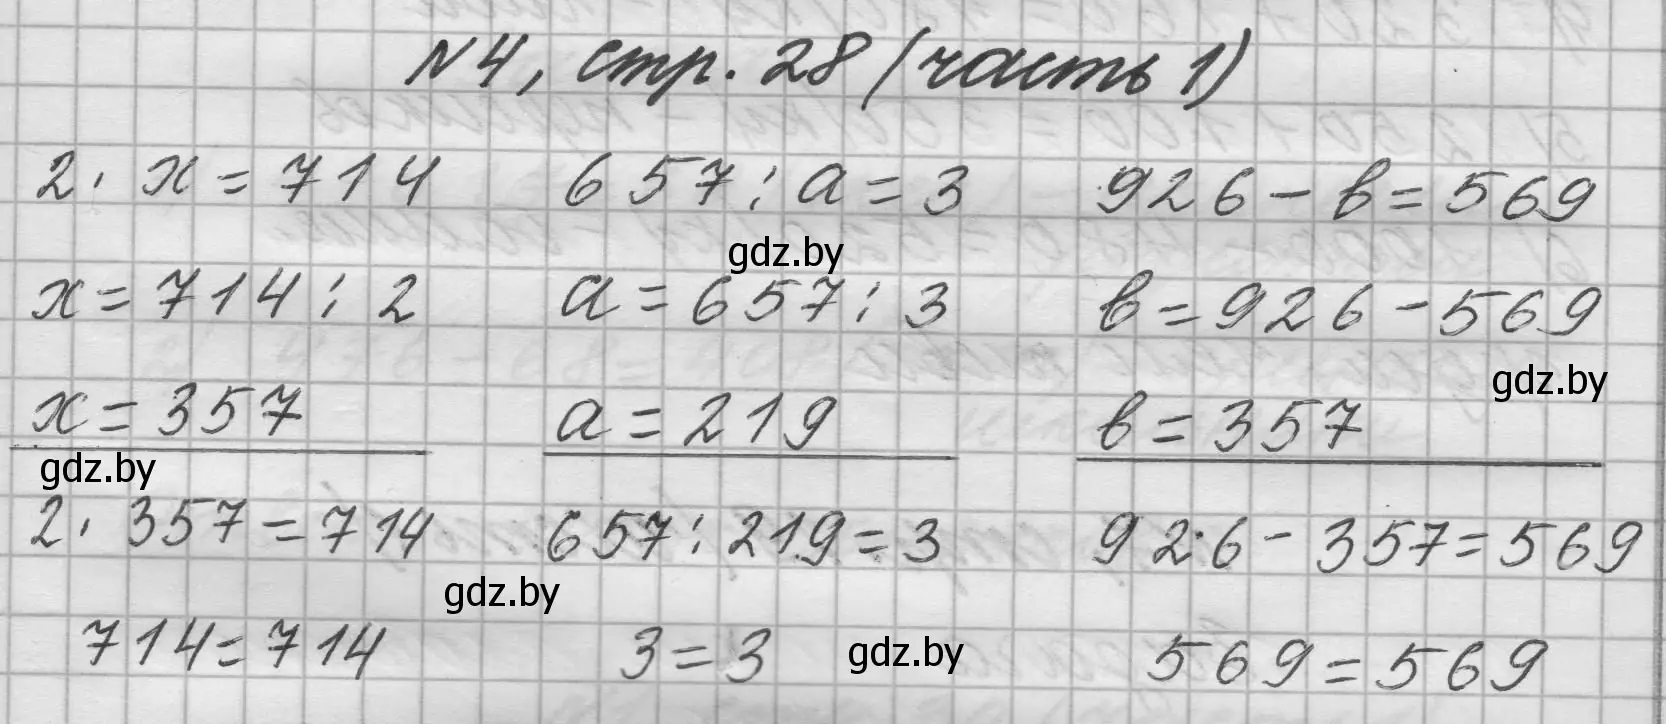 №4, стр. 28 (часть 1)
2 · x = 714 657 : a = 3 926 - b = 569
gdz.by
x = 714 : 2 a = 657 : 3 b = 926 - 569
gdz.by
x = 357 a = 219 b = 357
gdz.by
2 · 357 = 714 657 : 219 = 3 926 - 357 = 569
gdz.by
714 = 714 3 = 3 569 = 569
gdz.by